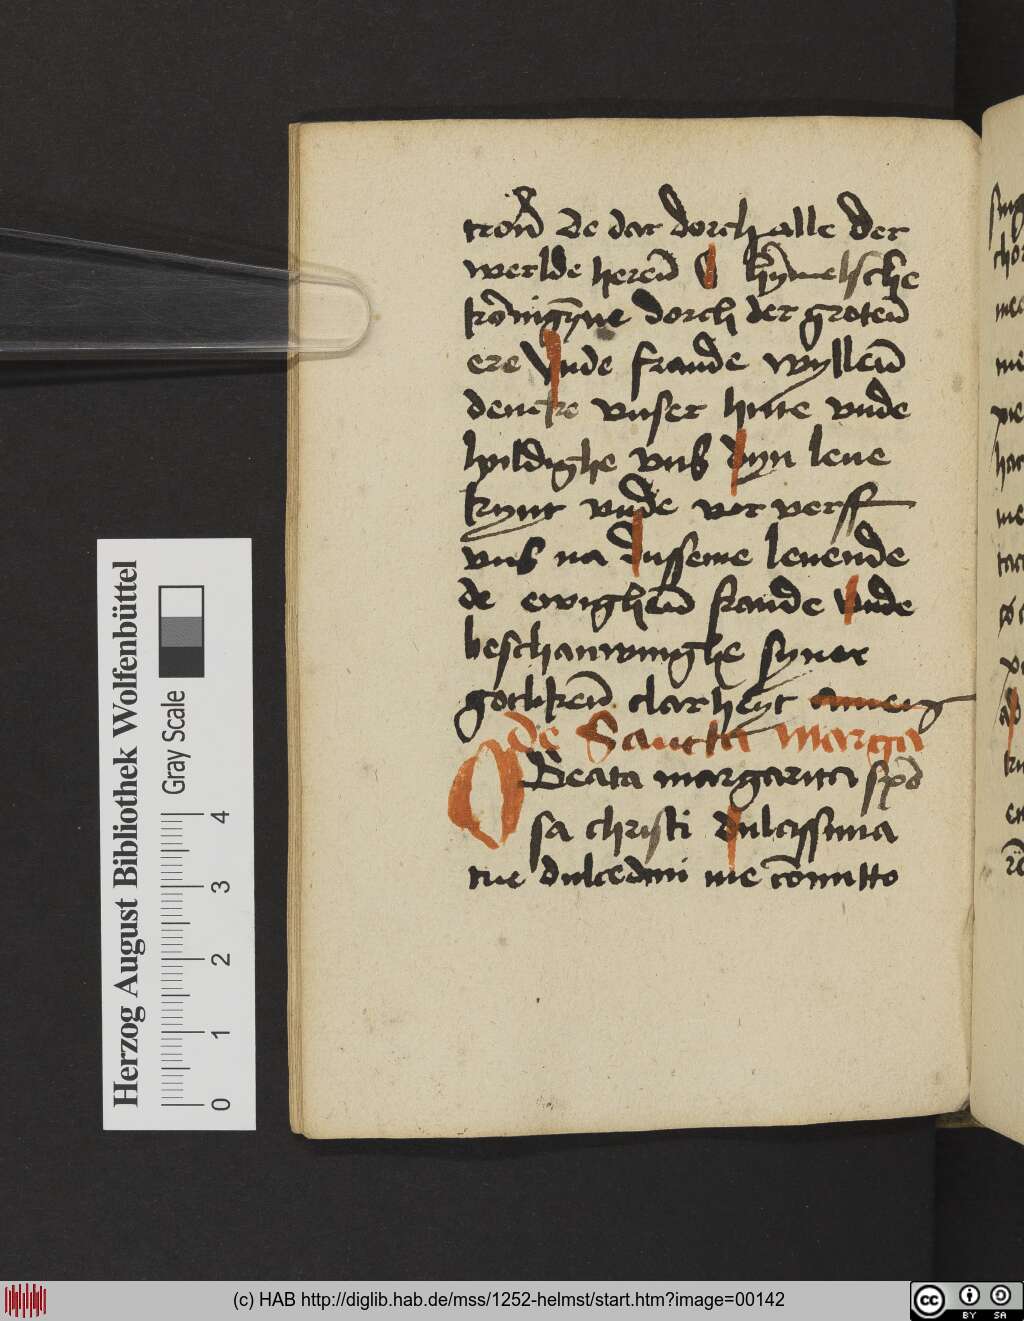 tron̄ de dar dorch alle der
werlde heren̄ O hȳmelsche
kon̄nigȳne dorch der groten̄
ere Vnde fraude wyllen̄
dencke vnser hute vnde
hyldighe vns dyn leue
kynt vnde vor verff
vns na dusseme leuende
de ewighen̄ fraude vnde
beschauwinghe syner
gotliken̄ clarheyt amen
de Sancta Marga
O Beata margarita spō
sa christi dulcissima
tue dulcedini me cōmitto
Herzog August Bibliothek Wolfenbüttel
Gray Scale
0 1 2 3 4
(c) HAB http://diglib.hab.de/mss/1252-helmst/start.htm?image=00142
cc BY SA